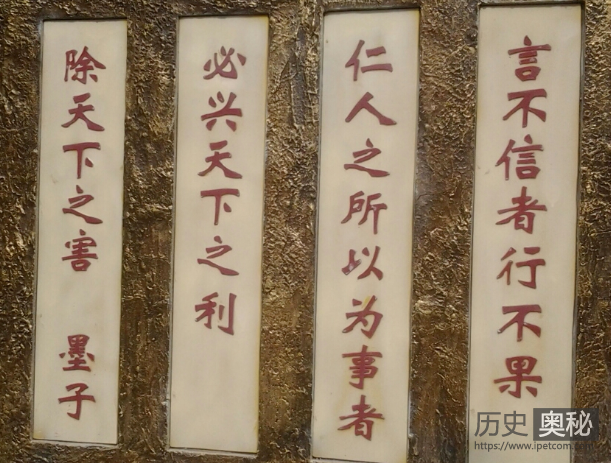 言不信者行不果
仁人之所以为事者
必兴天下之利
除天下之害 墨子
历史奥秘
https://www.ipetcom.com